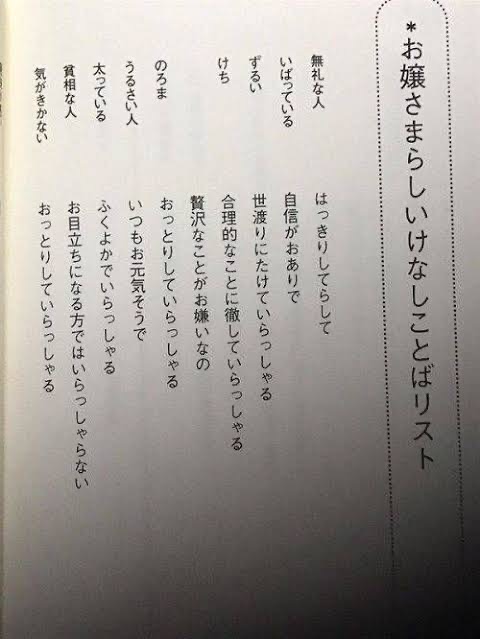 *お嬢さまらしいけなしことばリスト
無礼な人 はっきりしてらして
いばっている 自信がおありで
ずるい 世渡りにたけていらっしゃる
けち 合理的なことに徹していらっしゃる
贅沢なことがお嫌いなの
のろま おっとりしていらっしゃる
うるさい人 いつもお元気そうで
太っている ふくよかでいらっしゃる
貧相な人 お目立ちになる方ではいらっしゃらない
気がきかない おっとりしていらっしゃる